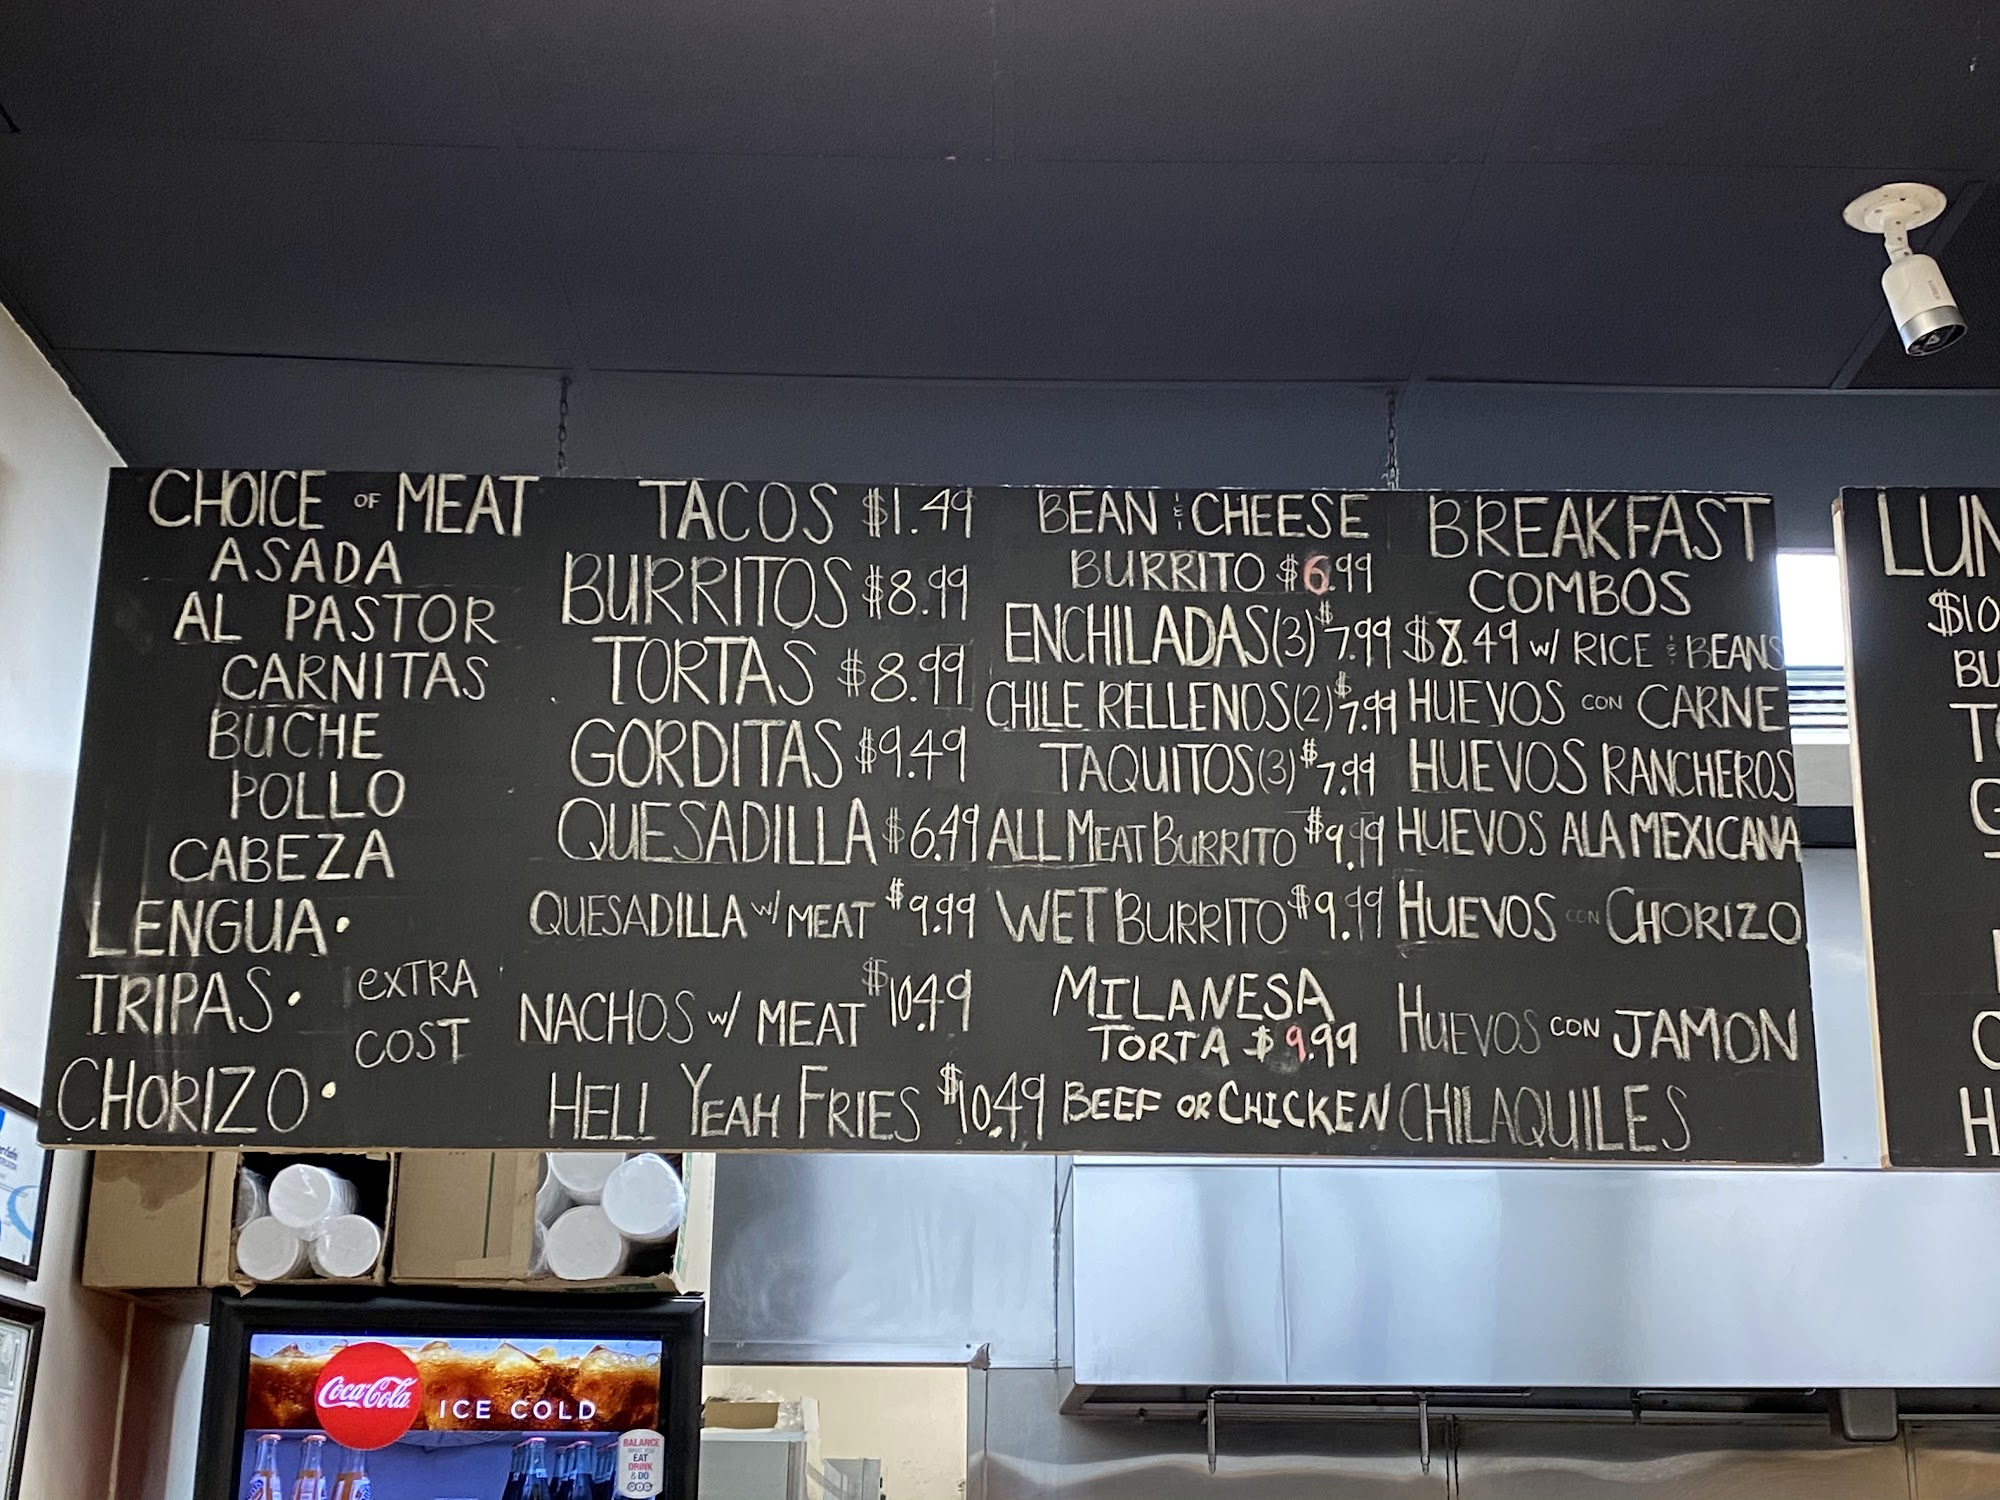 CHOICE OF MEAT
ASADA
AL PASTOR
CARNITAS
BUCHE
POLLO
CABEZA
LENGUA•
TRIPAS•
CHORIZO•
EXTRA
COST
TACOS $1.49
BURRITOS $8.99
TORTAS $8.99
GORDITAS $9.49
QUESADILLA $6.49
QUESADILLA w/ MEAT $9.99
NACHOS w/ MEAT $10.49
HELL YEAH FRIES $10.49
BEAN & CHEESE
BURRITO $6.99
ENCHILADAS(3) $7.99
CHILE RELLENOS(2) $7.99
TAQUITOS(3) $7.99
ALL MEAT BURRITO $9.99
WET BURRITO $9.99
MILANESA
TORTA $9.99
BEEF OR CHICKEN
BREAKFAST
COMBOS
$8.49 w/ RICE & BEANS
HUEVOS CON CARNE
HUEVOS RANCHEROS
HUEVOS ALA MEXICANA
HUEVOS CON CHORIZO
HUEVOS CON JAMON
CHILAQUILES
LUN
$10
BU
TO
G
C
H
Coca-Cola
ICE COLD
BALANCE
WHAT YOU
EAT
DRINK
& DO